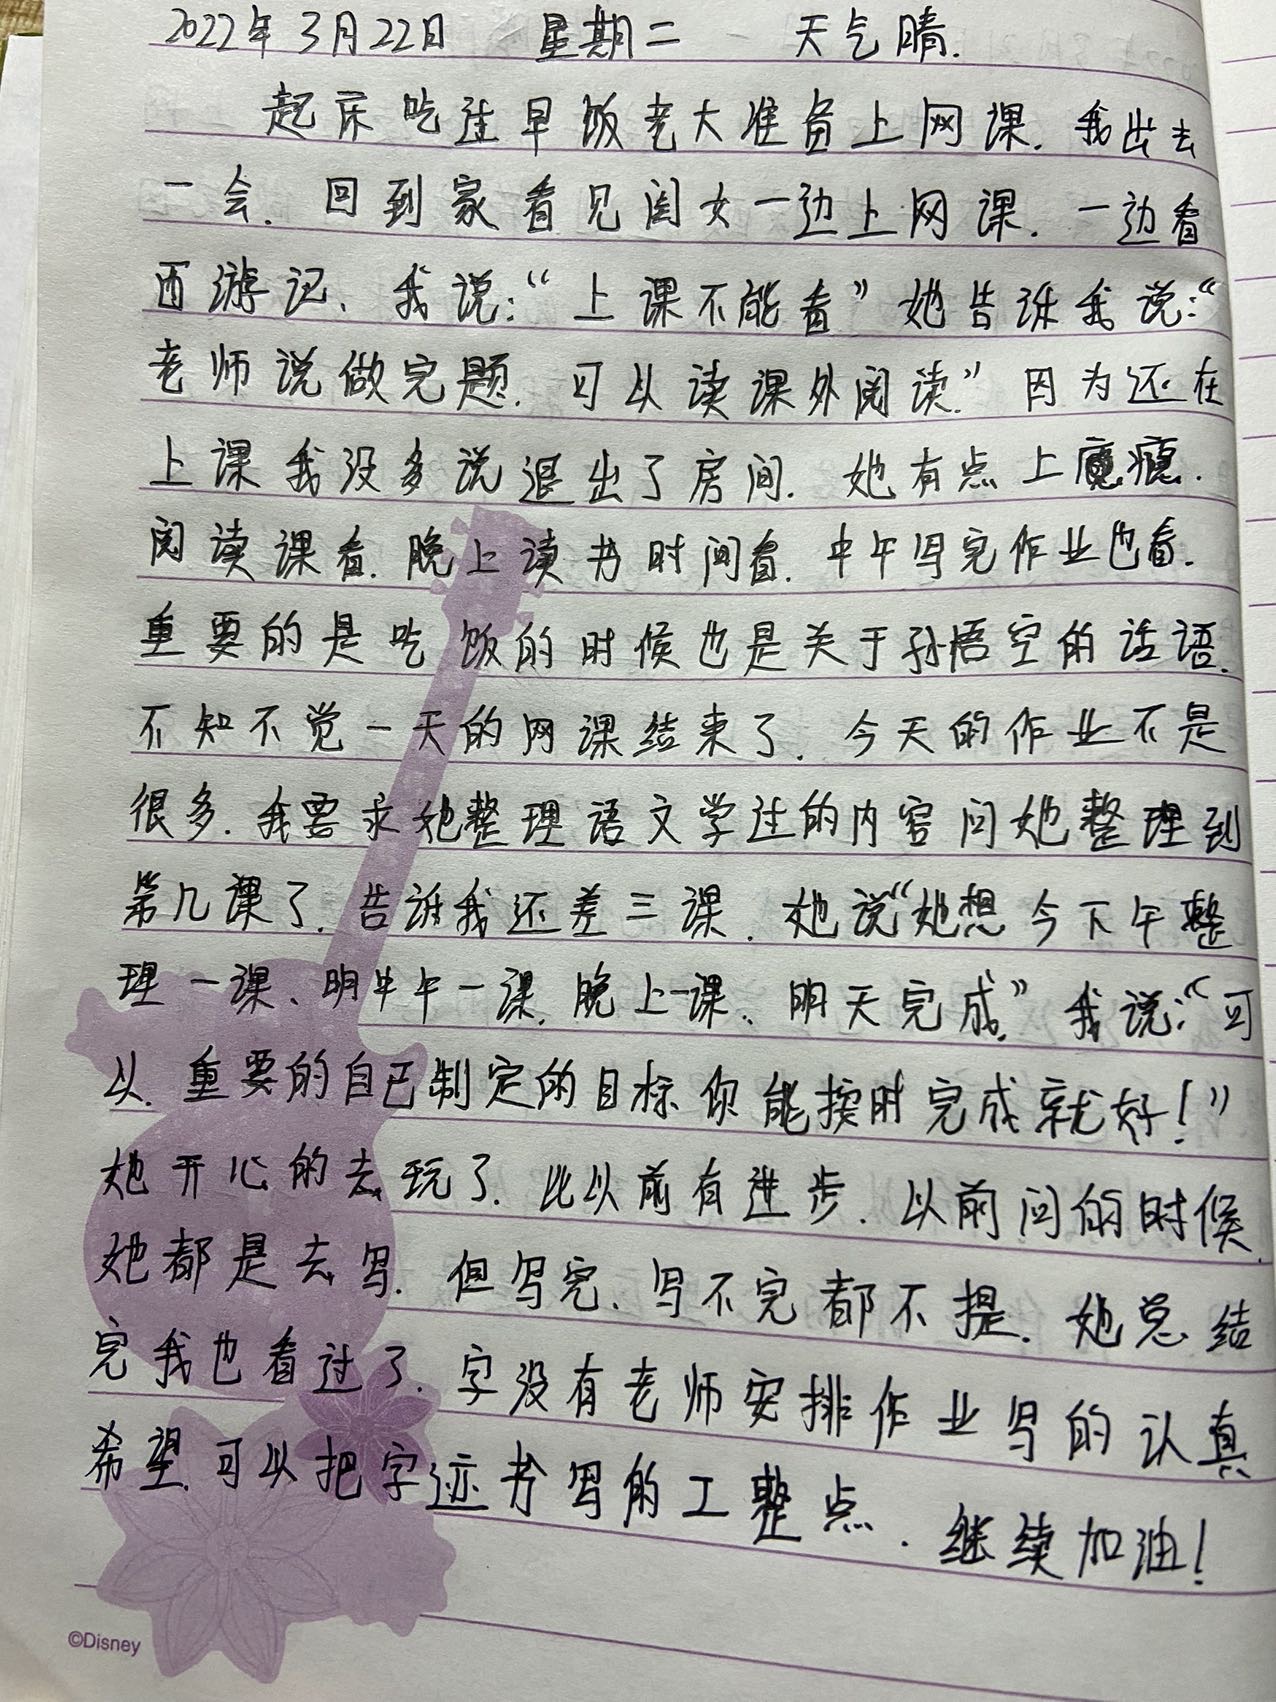 2022年3月22日 星期二 天气晴.
起床吃过早饭老大准备上网课.我出去
一会.回到家看见闺女一边上网课.一边看
西游记、我说:“上课不能看”她告诉我说:“
老师说做完题.可以读课外阅读.”因为还在
上课我没多说退出了房间.她有点上瘾.
阅读课看.晚上读书时间看.中午写完作业也看.
重要的是吃饭的时候也是关于孙悟空的话语.
不知不觉一天的网课结束了.今天的作业不是
很多.我要求她整理语文学过的内容问她整理到
第几课了.告诉我还差三课.她说“她想今下午整
理一课、明中午一课.晚上一课、明天完成.”我说:“可
以.重要的自己制定的目标你能按时完成就好!”
她开心的去玩了.比以前有进步.以前问的时候.
她都是去写.但写完、写不完都不提.她总结
完我也看过了.字没有老师安排作业写的认真
希望.可以把字迹书写的工整点.继续加油!
©Disney